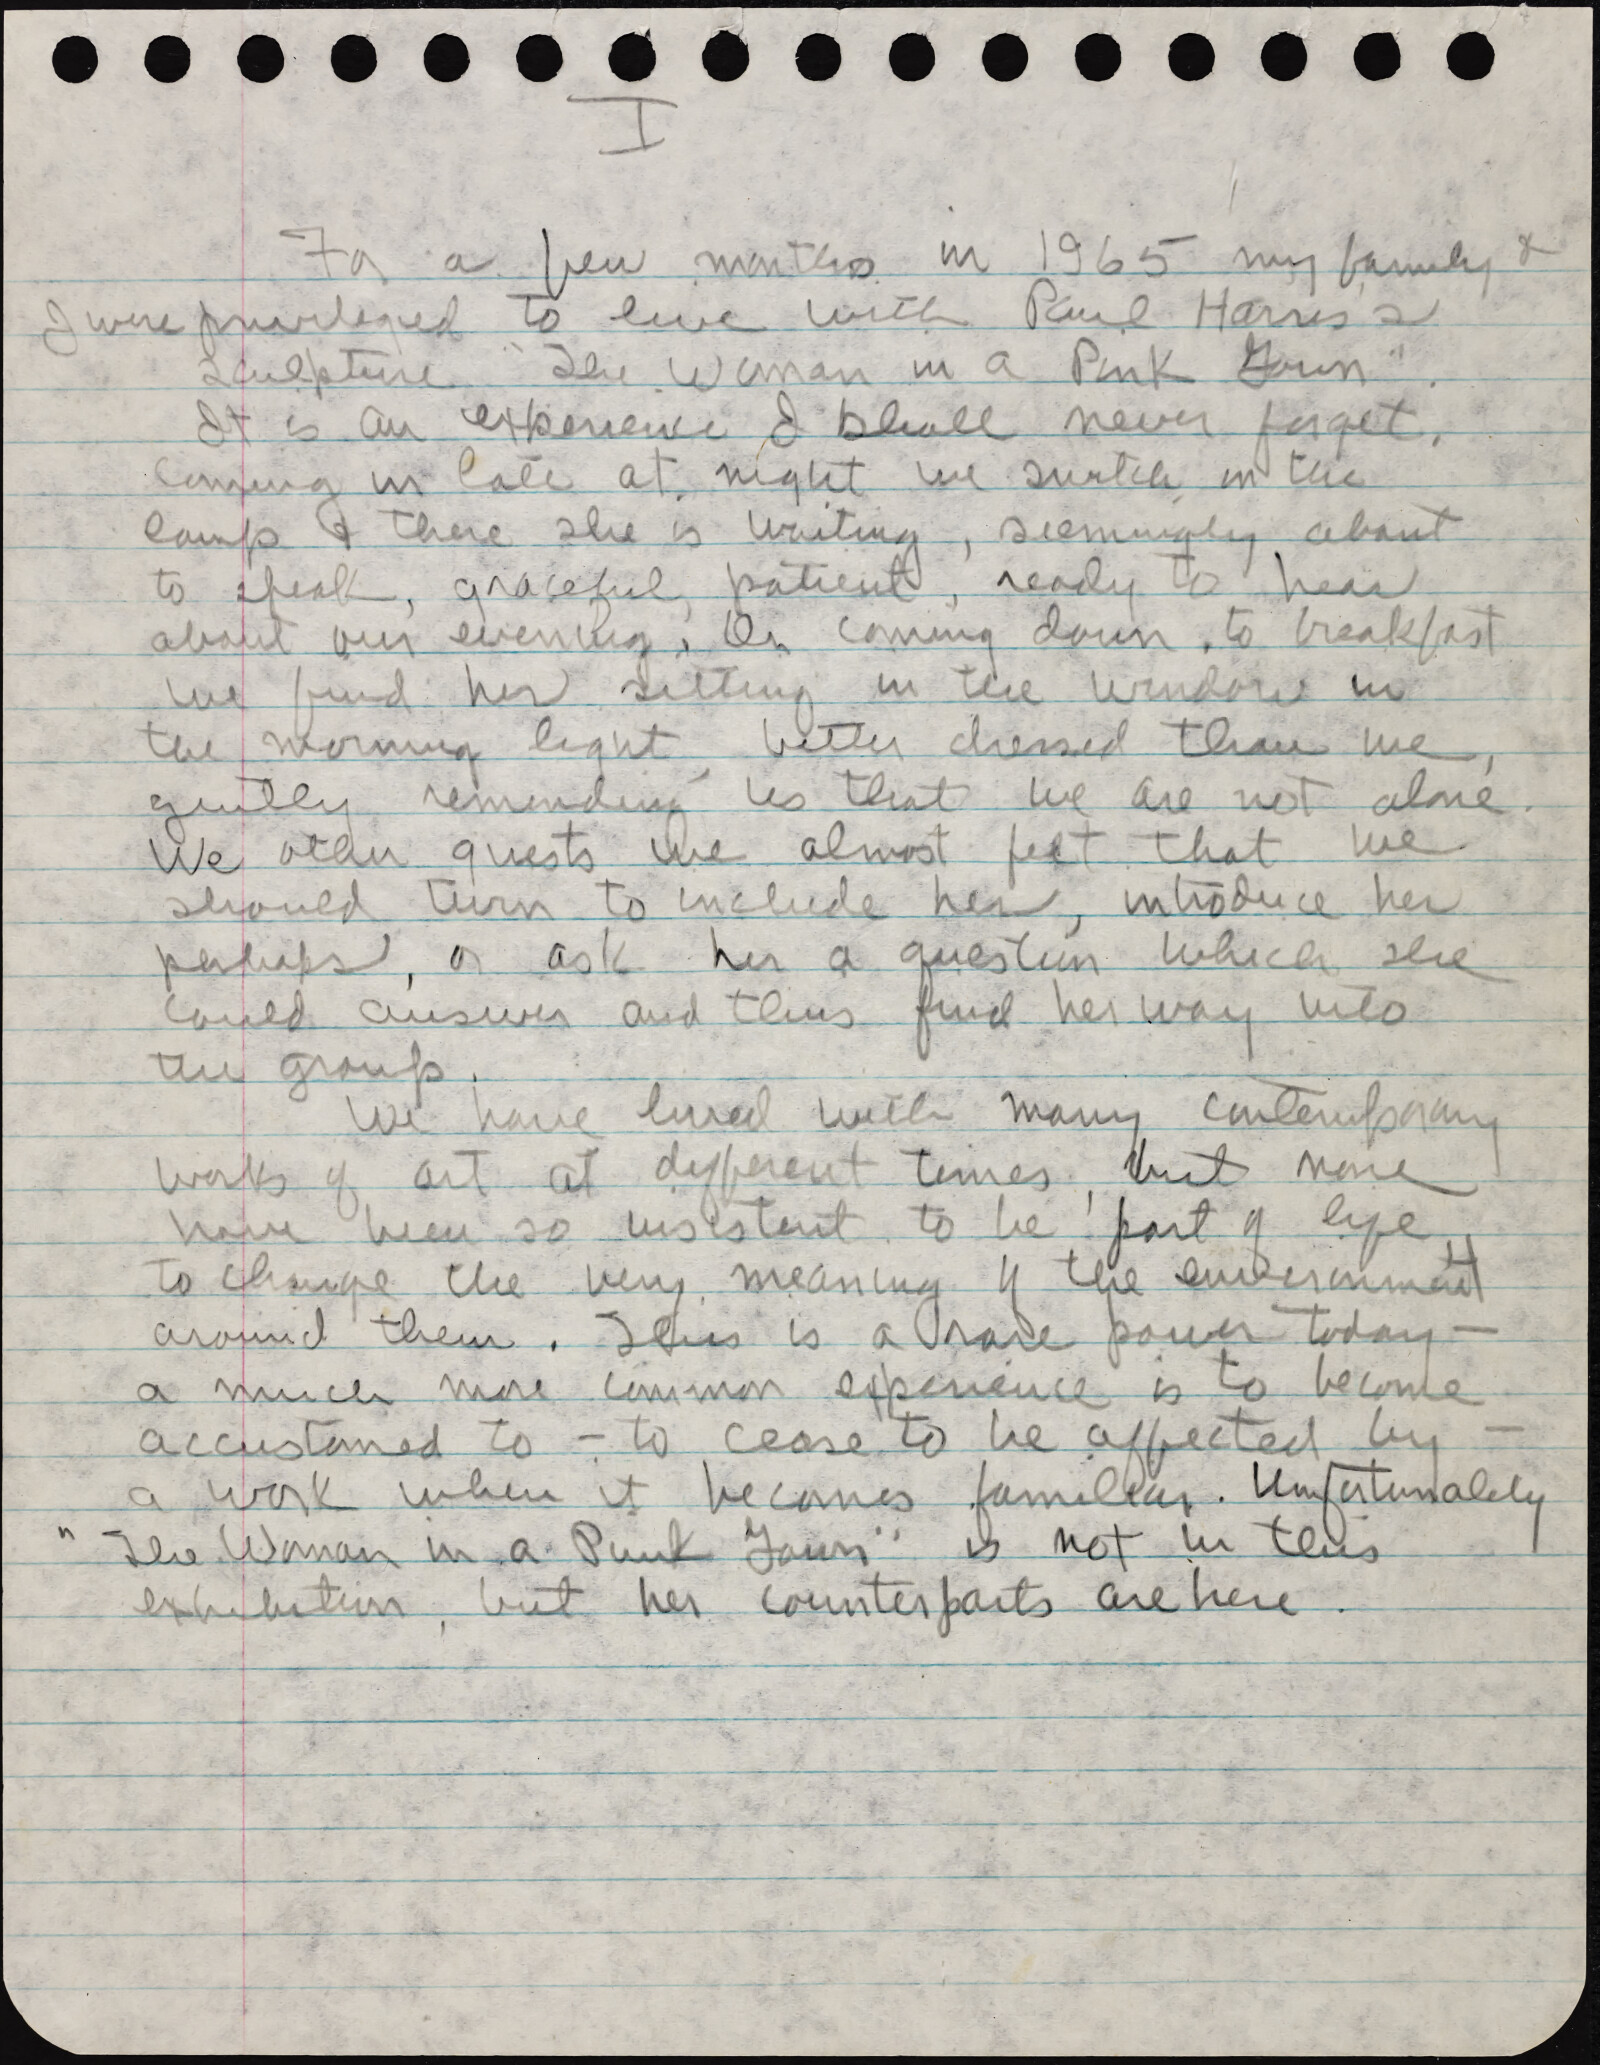 I
For a few months in 1965 my family &
I were privileged to live with Paul Harris's
sculpture "The Woman in a Pink Gown".
It is an experience I shall never forget.
Coming in late at night we switch on the
lamp & there she is waiting, seemingly about
to speak, graceful, patient, ready to hear
about our evening. Or coming down to breakfast
we find her sitting in the window in
the morning light, better dressed than we,
gently reminding us that we are not alone.
We other guests we almost felt that we
should turn to include her, introduce her
perhaps, or ask her a question which she
could answer and thus find her way into
the group.
We have lived with many contemporary
works of art at different times, but none
have been so insistent to be part of life,
to change the very meaning of the environment
around them. This is a rare power today —
a much more common experience is to become
accustomed to — to cease to be affected by —
a work when it becomes familiar. Unfortunately
"The Woman in a Pink Gown" is not in this
exhibition, but her counterparts are here.